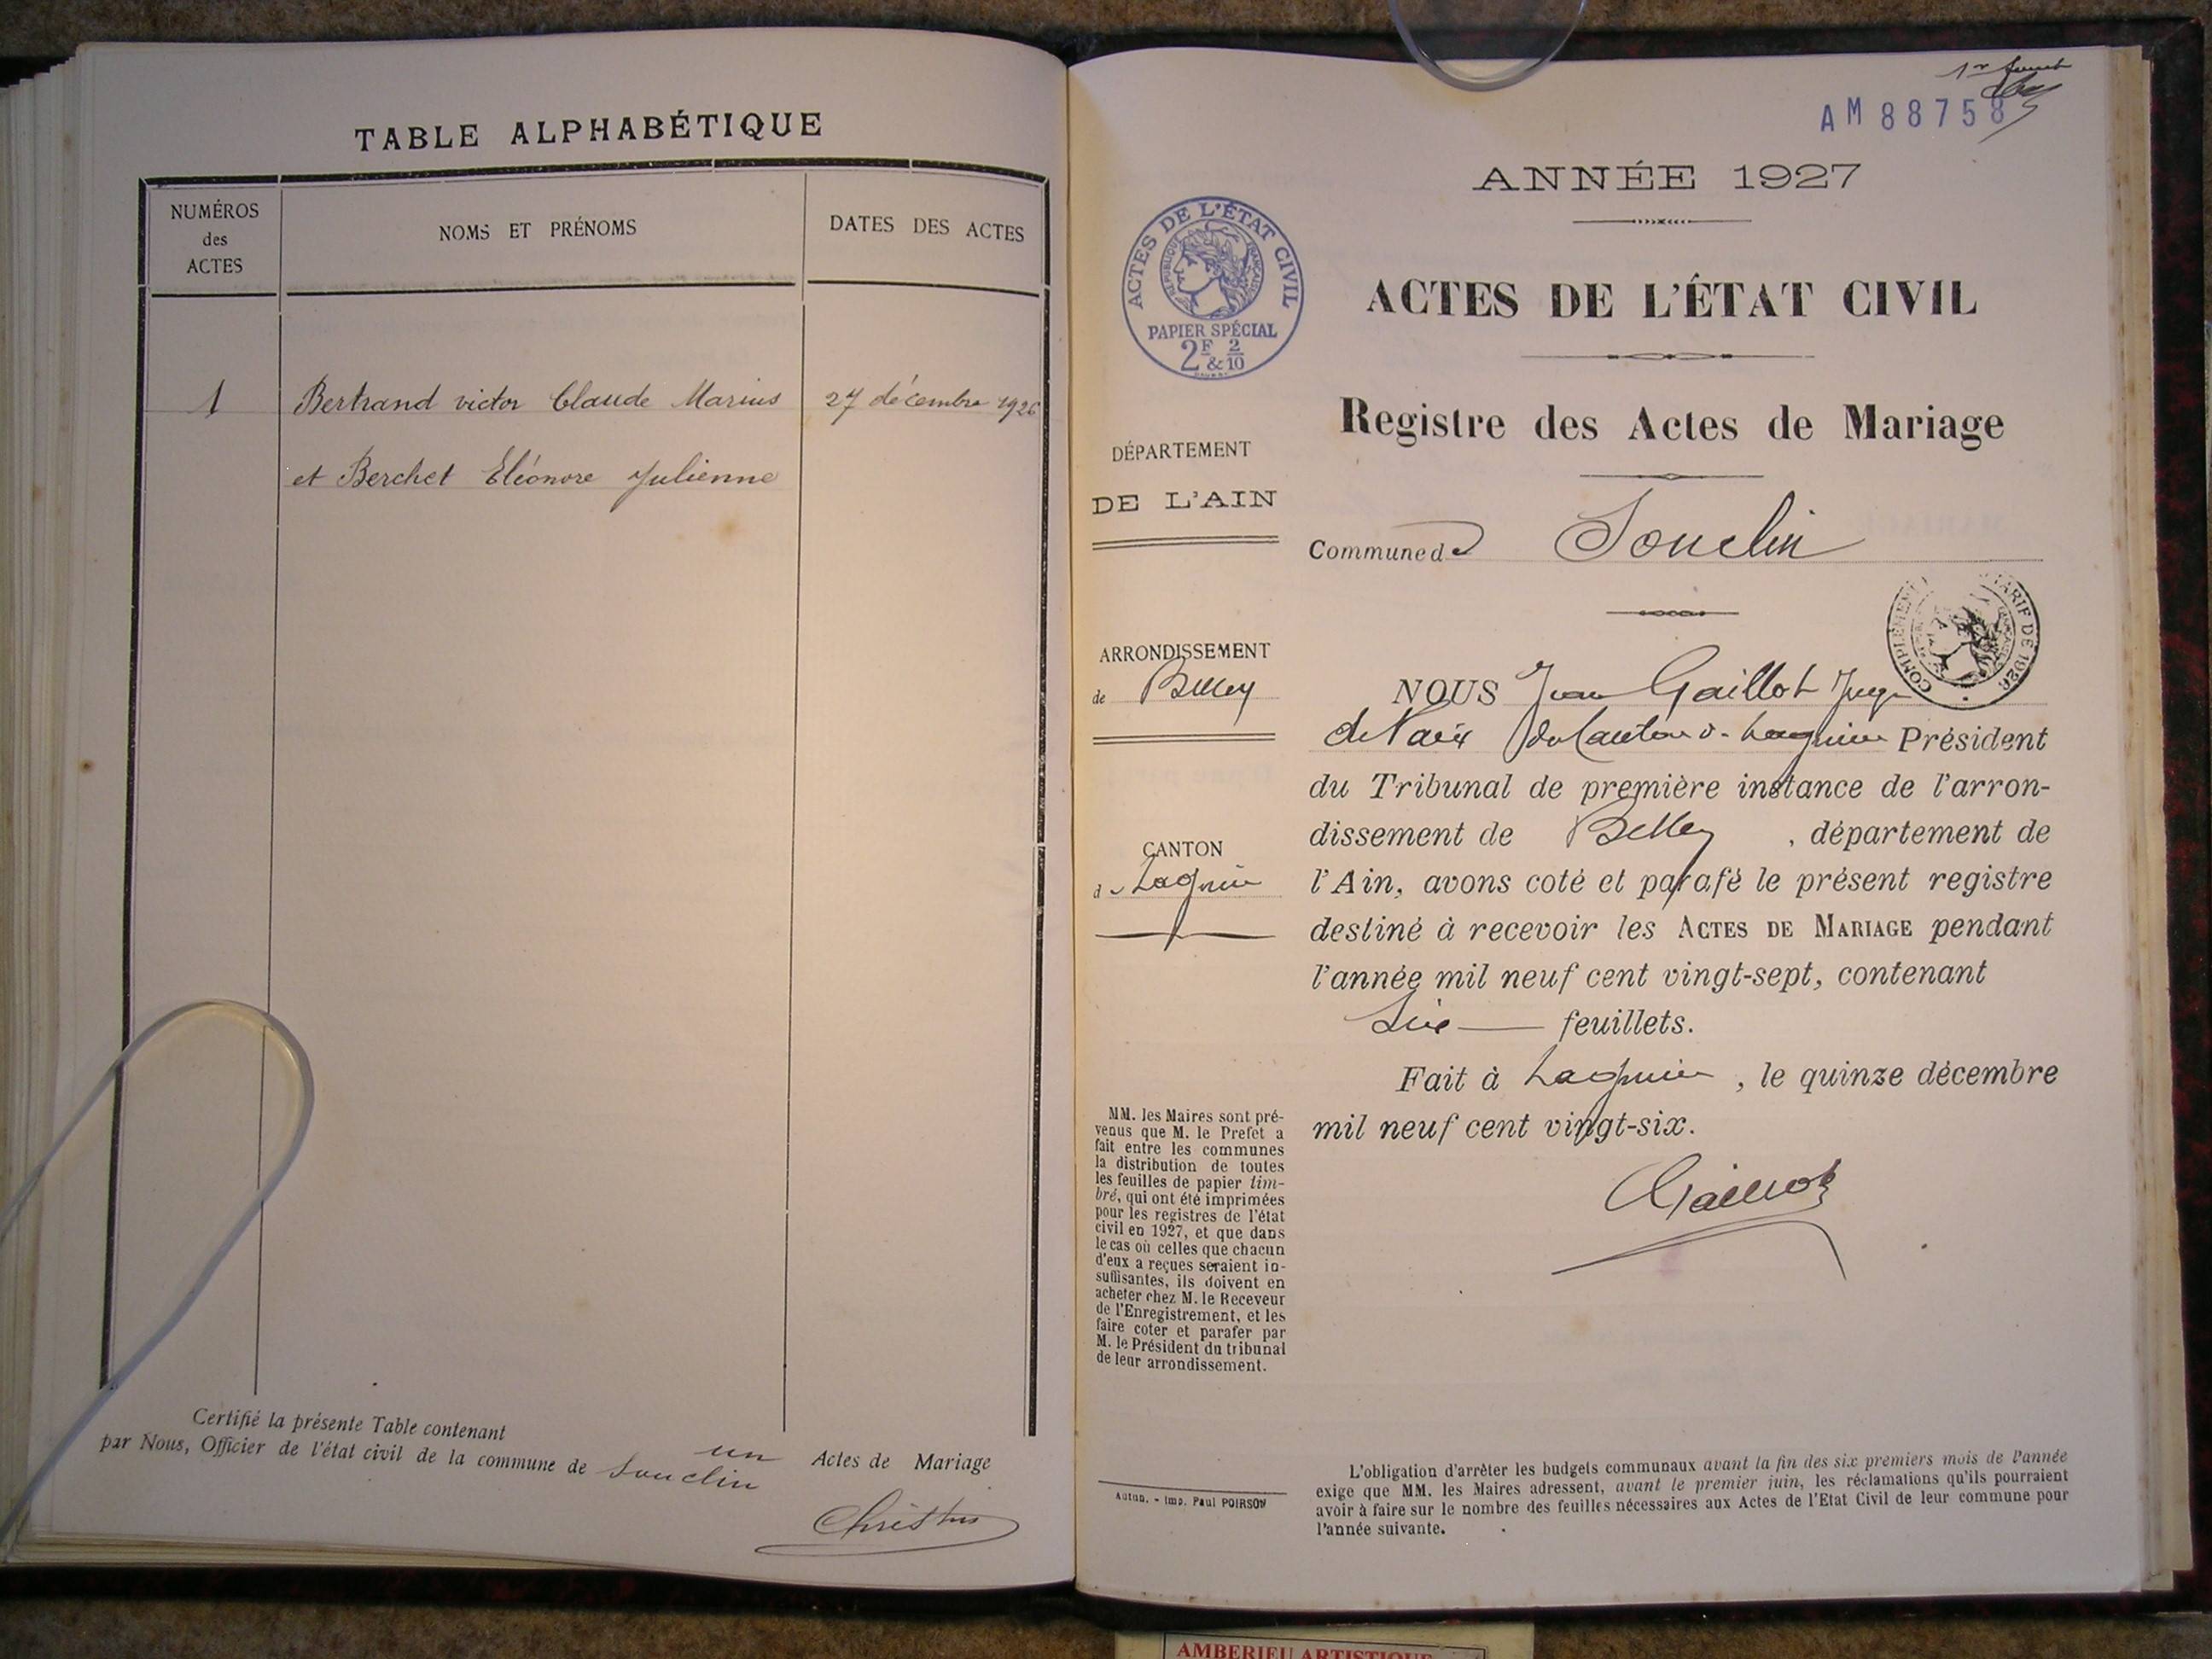 TABLE ALPHABÉTIQUE
NUMÉROS
des
ACTES
NOMS ET PRÉNOMS
DATES DES ACTES
1
Bertrand victor Claude Marius
27 décembre 1926
et Berchet Eléonore Julienne
Certifié la présente Table contenant un Actes de Mariage
par Nous, Officier de l'état civil de la commune de Souclin
Christin
1er feuillet
AM 88758
ANNÉE 1927
ACTES DE L'ÉTAT CIVIL
RÉPUBLIQUE FRANÇAISE
PAPIER SPÉCIAL
2F & 2/10
ACTES DE L'ÉTAT CIVIL
Registre des Actes de Mariage
DÉPARTEMENT
DE L'AIN
Commune de Souclin
COMPLÉMENT TARIF DE 1926
ARRONDISSEMENT
de Belley
CANTON
de Lagnieu
NOUS Jean Gaillot Juge
de Paix du Canton de Lagnieu Président
du Tribunal de première instance de l'arron-
dissement de Belley, département de
l'Ain, avons coté et parafé le présent registre
destiné à recevoir les ACTES DE MARIAGE pendant
l'année mil neuf cent vingt-sept, contenant
Six feuillets.
Fait à Lagnieu, le quinze décembre
mil neuf cent vingt-six.
Gaillot
MM. les Maires sont pré-
venus que M. le Prefet a
fait entre les communes
la distribution de toutes
les feuilles de papier tim-
bré, qui ont été imprimées
pour les registres de l'état
civil en 1927, et que dans
le cas où celles que chacun
d'eux a reçues seraient in-
suffisantes, ils doivent en
acheter chez M. le Receveur
de l'Enregistrement, et les
faire coter et parafer par
M. le Président du tribunal
de leur arrondissement.
Autun. - Imp. Paul POIRSON
L'obligation d'arrêter les budgets communaux avant la fin des six premiers mois de l'année
exige que MM. les Maires adressent, avant le premier juin, les réclamations qu'ils pourraient
avoir à faire sur le nombre des feuilles nécessaires aux Actes de l'Etat Civil de leur commune pour
l'année suivante.
AMBERIEU ARTISTIQUE